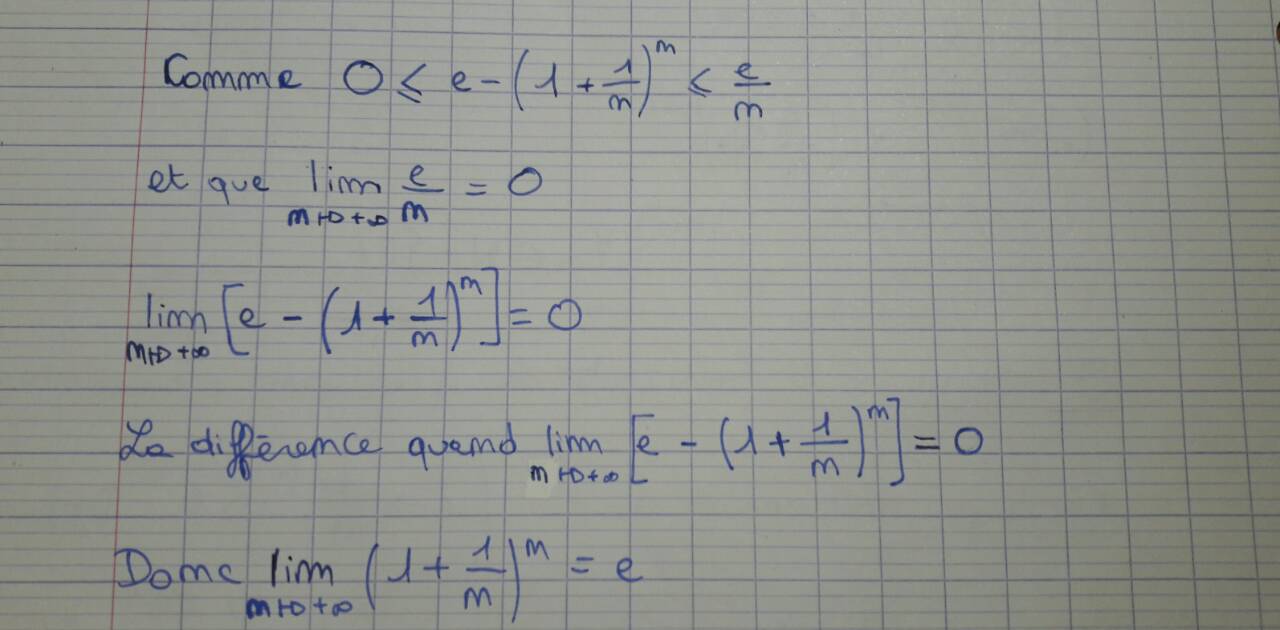 Comme 0 ≤ e - (1 + 1/n)^n ≤ e/n
et que lim n→+∞ e/n = 0
lim n→+∞ [e - (1 + 1/n)^n] = 0
La différence quand lim n→+∞ [e - (1 + 1/n)^n] = 0
Donc lim n→+∞ (1 + 1/n)^n = e